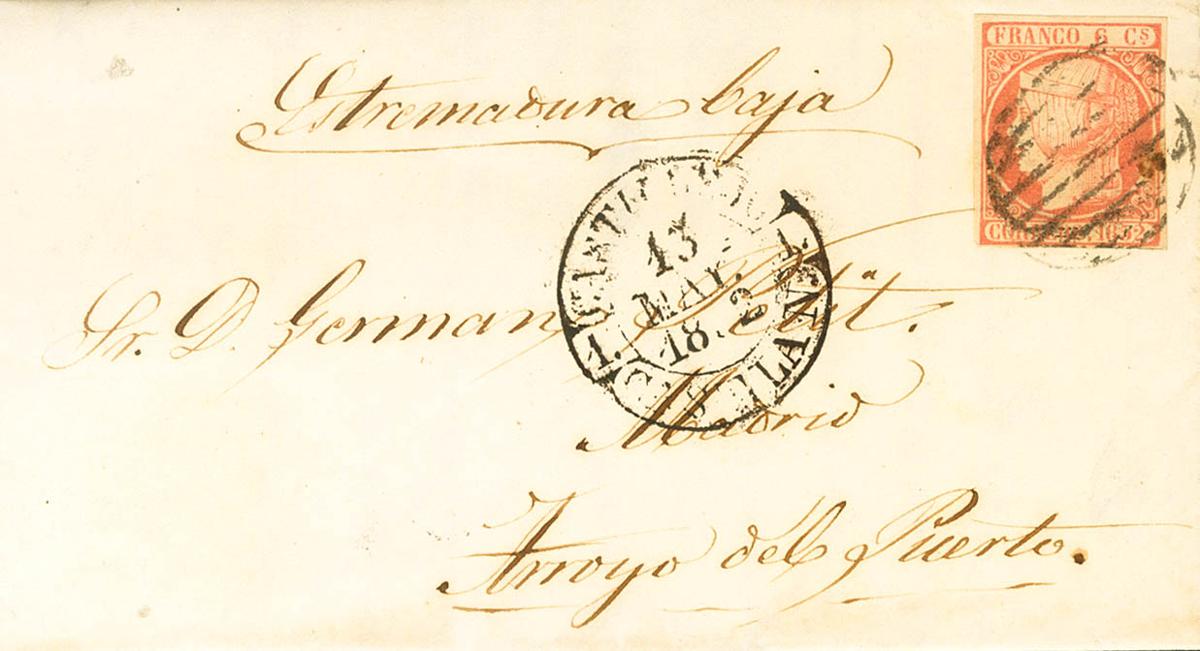 FRANCO 6 Cs
CORREOS 1852
Estremadura baja
13
MAY.
18 2
Sr. D. German
Madrid
Arroyo del Puerto.